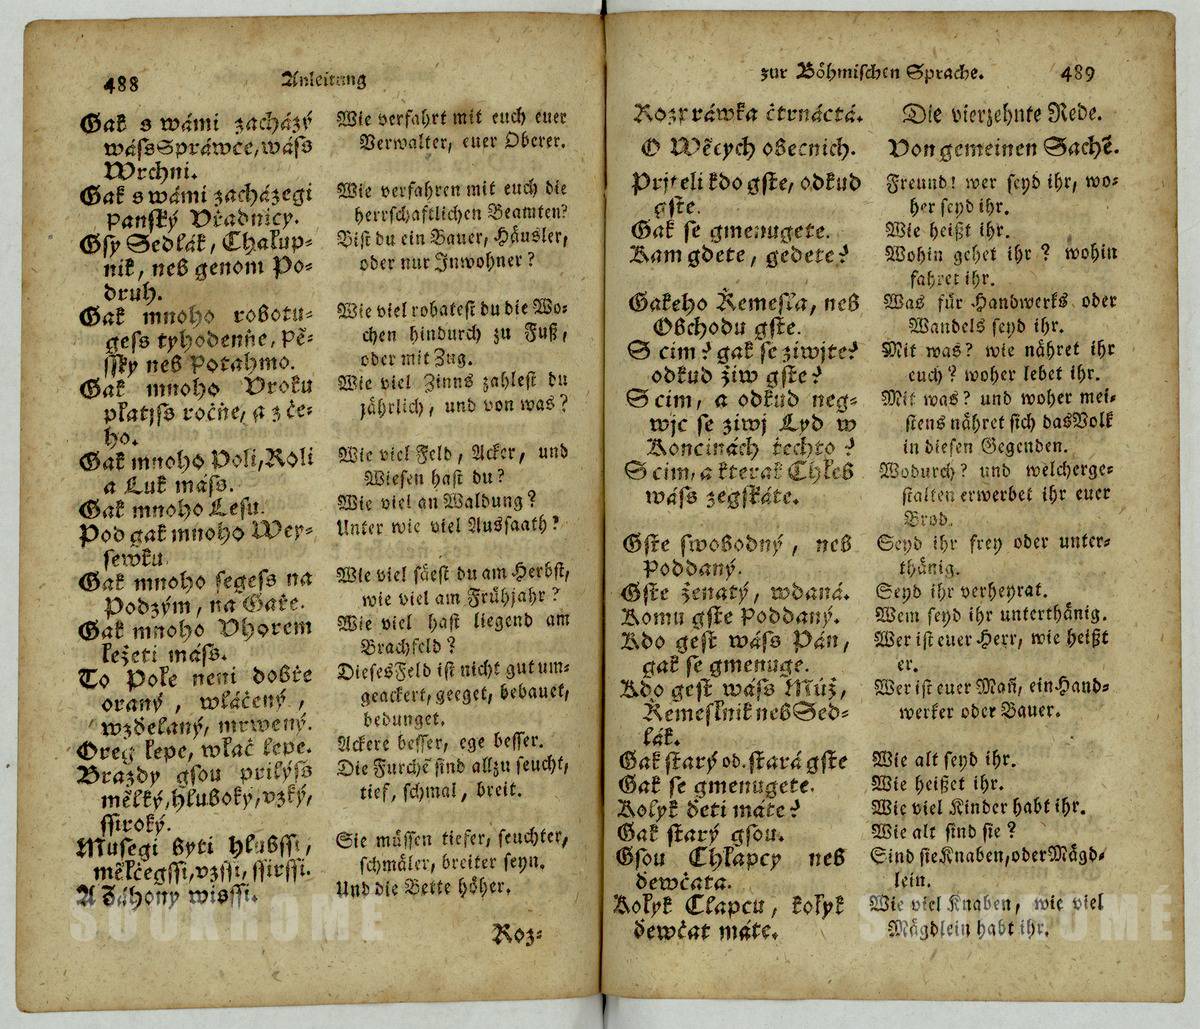 488
Anleitung
Gak s wámi zacházý
wássSpráwce, wáss
Wrchni.
Gak s wámi zacházegi
panský Vřadnicy.
Gsy Sedlák, Chalup-
nik, neb genom Po-
druh.
Gak mnoho robotu-
gess tyhodenňe, pě-
ssky neb potahmo.
Gak mnoho Vroku
platjss ročňe, a z če-
ho.
Gak mnoho Poli, Roli
a Luk máss.
Gak mnoho Lesu.
Pod gak mnoho Wey-
sewku
Gak mnoho segess na
Podzým, na Gaře.
Gak mnoho Vhorem
ležeti máss.
To Pole neni dobře
oraný, wláčený,
wzdelaný, mrwený.
Oreg lepe, wlač lepe.
Brazdy gsou prilyss
mělký, hluboký, vzký,
ssiroký.
Musegi byti hlubssi,
mělčegssi, vzssi, ssirssi.
A Záhony wissi.
Wie verfahrt mit euch euer
Verwalter, euer Oberer.
Wie verfahren mit euch die
herrschaftlichen Beamten?
Bist du ein Bauer, Häusler,
oder nur Inwohner?
Wie viel robatest du die Wo-
chen hindurch zu Fuß,
oder mit Zug.
Wie viel Zinns zahlest du
jährlich, und von was?
Wie viel Feld, Acker, und
Wiesen hast du?
Wie viel an Waldung?
Unter wie viel Aussaath?
Wie viel säest du am Herbst,
wie viel am Frühjahr?
Wie viel hast liegend am
Brachfeld?
DiesesFeld ist nicht gut um-
geackert, geeget, bebauet,
bedunget.
Ackere besser, ege besser.
Die Furchē sind allzu seucht,
tief, schmal, breit.
Sie müssen tiefer, seuchter,
schmäler, breiter seyn.
Und die Bette höher.
Roz-
zur Böhmischen Sprache.
489
Rozpráwka čtrnáctá.
O Wěcych obecnich.
Prjteli kdo gste, odkud
gste.
Gak se gmenugete.
Kam gdete, gedete?
Gakeho Řemesla, neb
Obchodu gste.
S cim? gak se ziwjte?
odkud žiw gste?
S cim, a odkud neg-
wjc se ziwj Lyd w
Koncinách techto?
S cim, a kterak Chleb
wáss zegskáte.
Gste swobodný, neb
Poddaný.
Gste ženatý, wdaná.
Komu gste Poddaný.
Kdo gest wáss Pán,
gak se gmenuge.
Kdo gest wáss Múž,
Remeslnik neb Sed-
lák.
Gak starý od. stará gste
Gak se gmenugete.
Kolyk děti máte?
Gak starý gsou.
Gsou Chlapcy neb
děwčata.
Kolyk Clapcu, kolyk
děwčat máte.
Die vierzehnte Rede.
Von gemeinen Sachē.
Freund! wer seyd ihr, wo-
her seyd ihr.
Wie heißt ihr.
Wohin gehet ihr? wohin
fahret ihr.
Was für Handwerks oder
Wandels seyd ihr.
Mit was? wie nähret ihr
euch? woher lebet ihr.
Mit was? und woher mei-
stens nähret sich dasVolk
in diesen Gegenden.
Wodurch? und welcherge-
stalten erwerbet ihr euer
Brod.
Seyd ihr frey oder unter-
thänig.
Seyd ihr verheyrat.
Wem seyd ihr unterthänig.
Wer ist euer Herr, wie heißt
er.
Wer ist euer Mañ, ein Hand-
werker oder Bauer.
Wie alt seyd ihr.
Wie heißet ihr.
Wie viel Kinder habt ihr.
Wie alt sind sie?
Sind sie Knaben, oder Mägd-
lein.
Wie viel Knaben, wie viel
Mägdlein habt ihr.